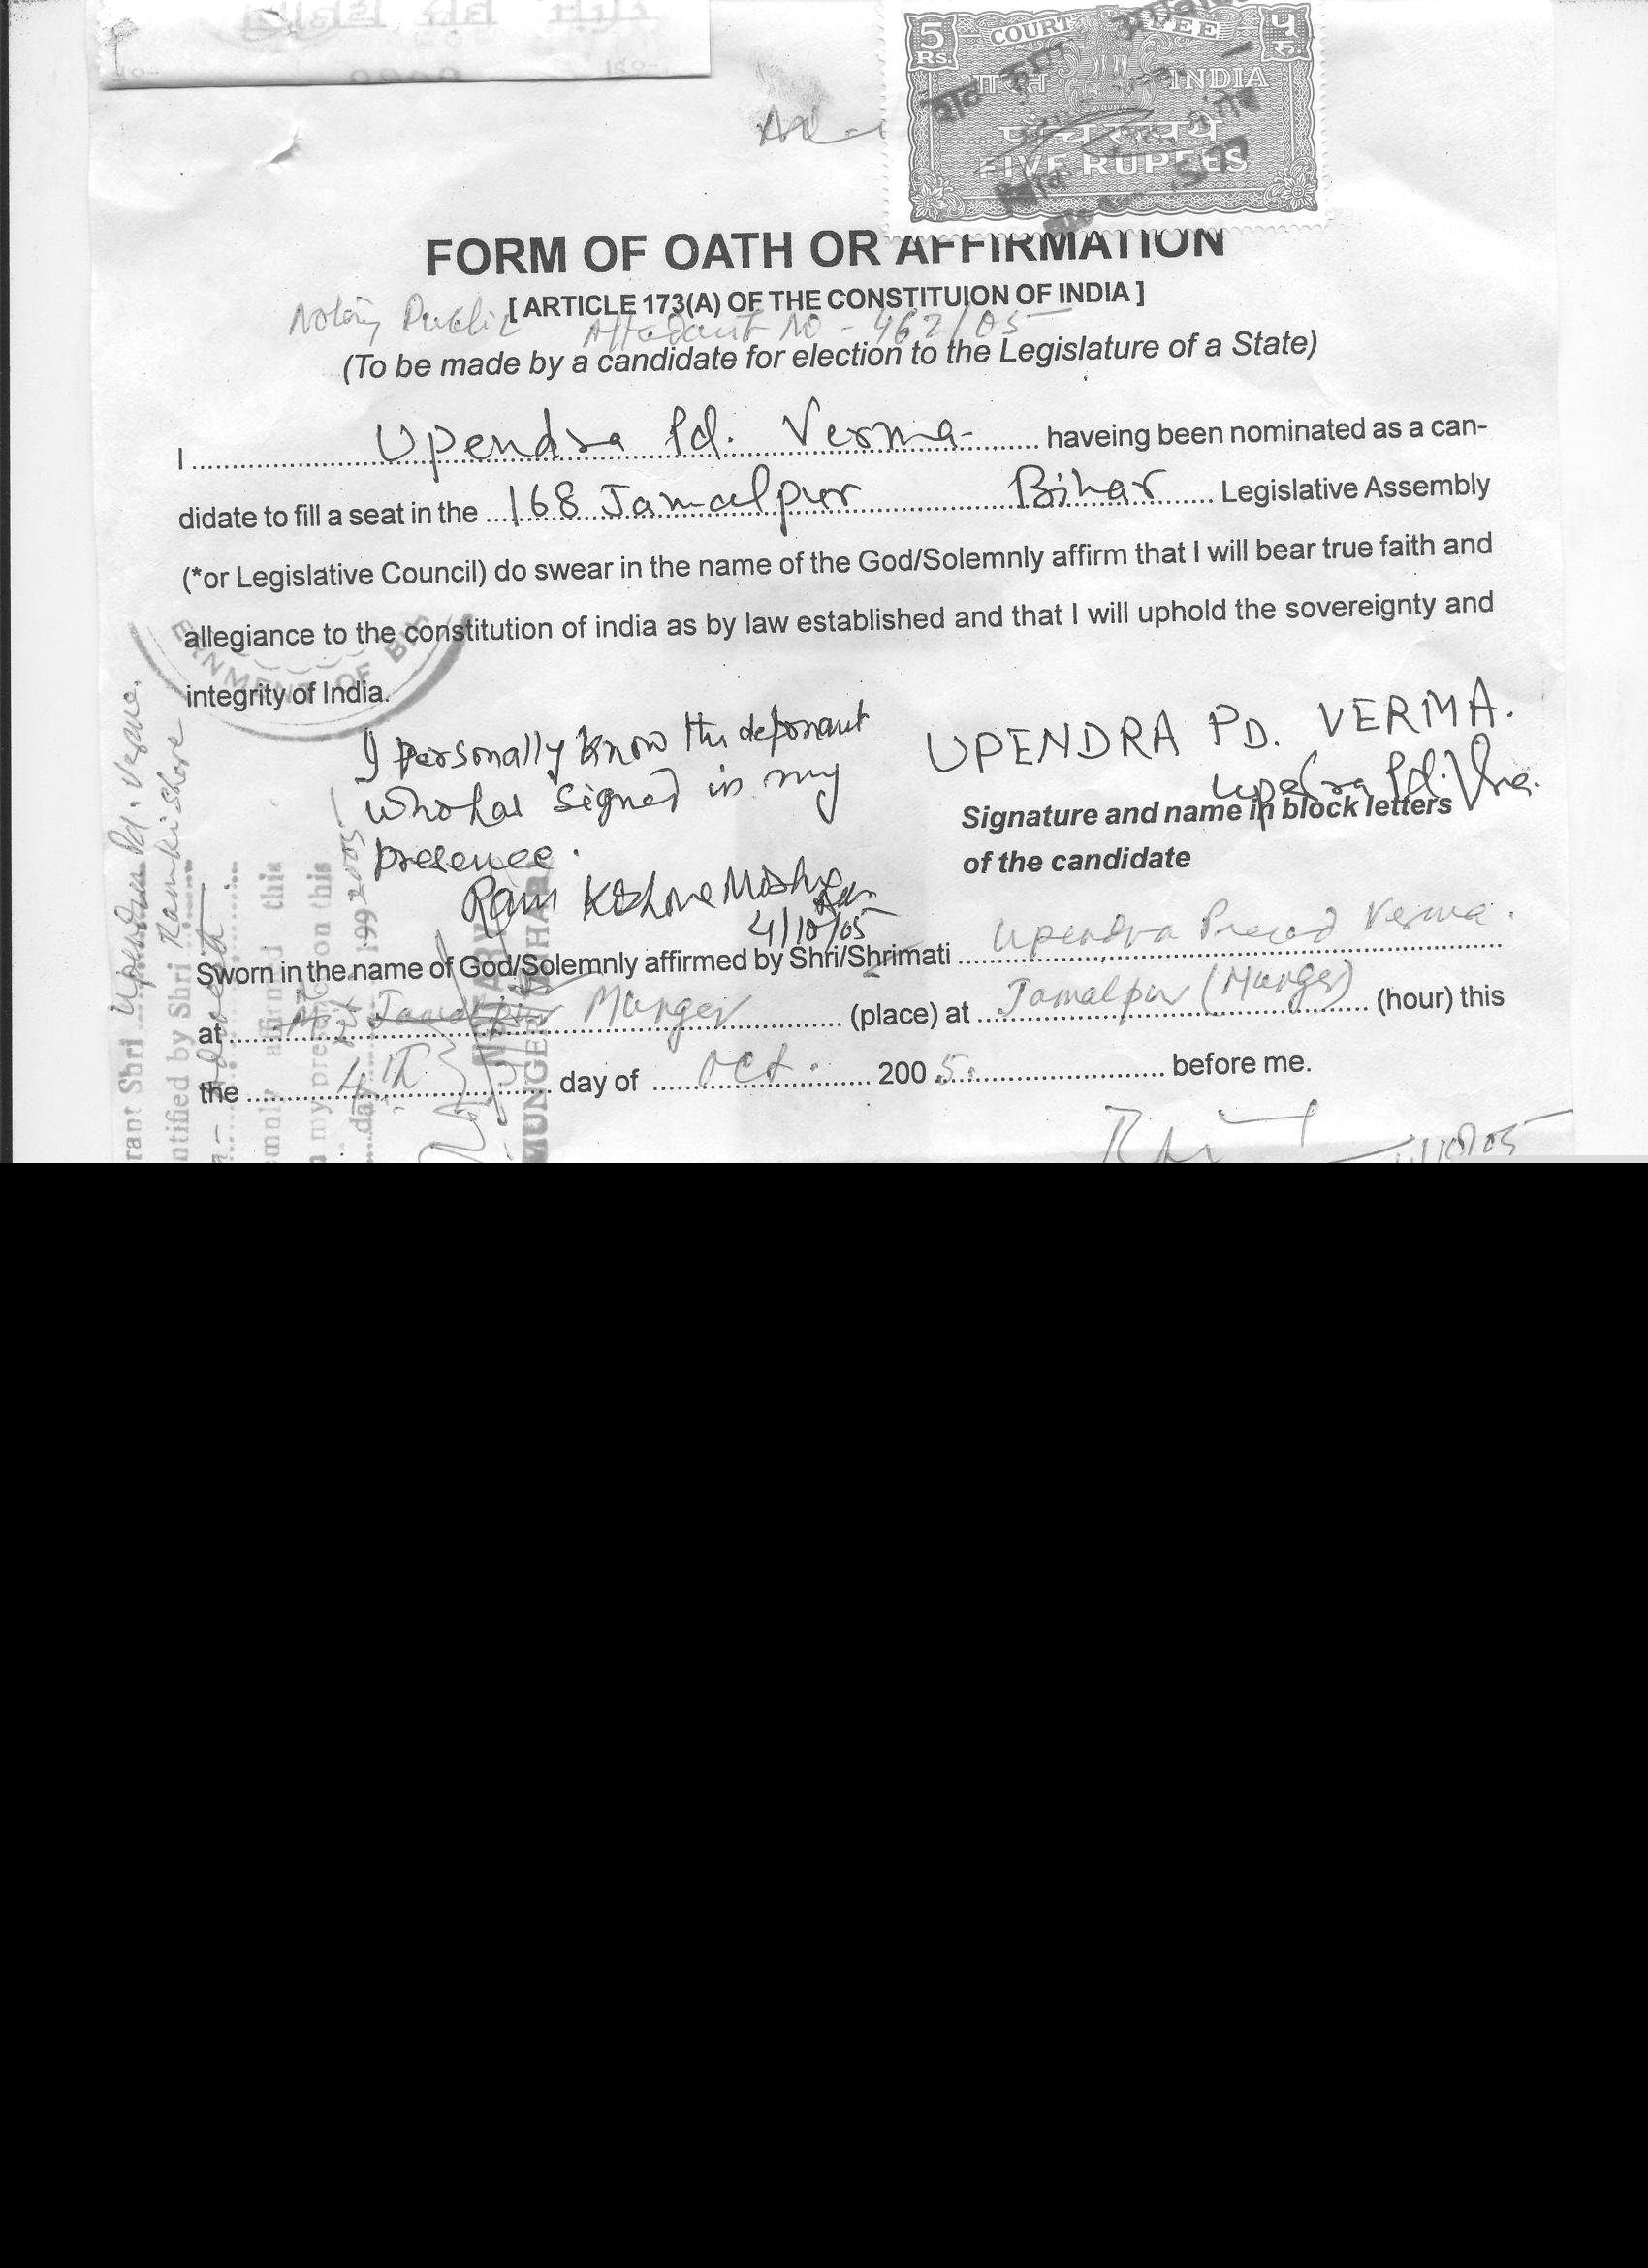 5 COURT FEE ५
Rs. रु.
भारत INDIA
पाँच रुपये
FIVE RUPEES
FORM OF OATH OR AFFIRMATION
[ ARTICLE 173(A) OF THE CONSTITUION OF INDIA ]
Notary Public No - 462/05
(To be made by a candidate for election to the Legislature of a State)
I Upendra Pd. Verma haveing been nominated as a can-
didate to fill a seat in the 168 Jamalpur Bihar Legislative Assembly
(*or Legislative Council) do swear in the name of the God/Solemnly affirm that I will bear true faith and
allegiance to the constitution of india as by law established and that I will uphold the sovereignty and
integrity of India.
I personally know the deponant
who has signed in my
presence.
Ram Kishore Mishra
4/10/05
UPENDRA PD. VERMA.
Signature and name in block letters
of the candidate
Sworn in the name of God/Solemnly affirmed by Shri/Shrimati Upendra Prasad Verma.
at Jamalpur Munger (place) at Jamalpur (Munger) (hour) this
the 4th day of Oct. 2005. before me.
Shri Upendra Pd. Verma.
by Shri Ramkishore
affirmed this
on this
day 199 2005
NOTARY
MUNGER BIHAR